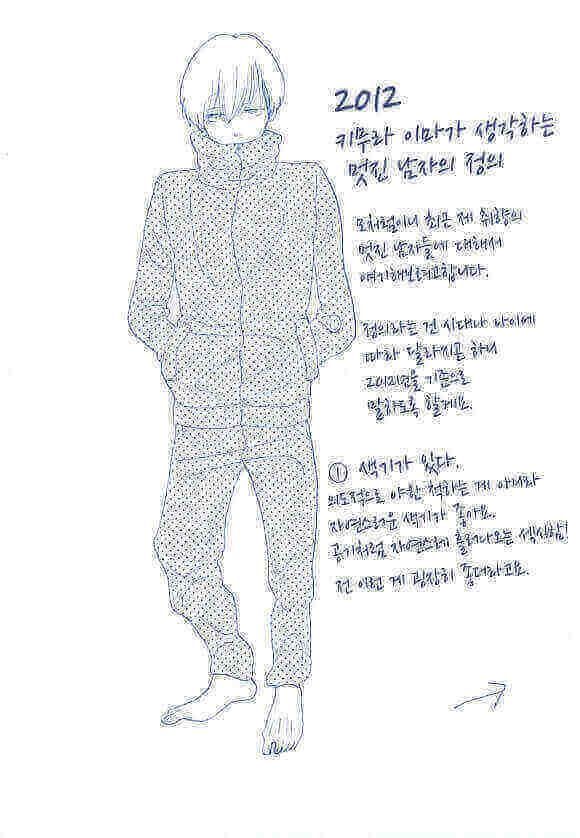 2012
키무라 이마가 생각하는
멋진 남자의 정의
모처럼이니 최근 제 취향의
멋진 남자들에 대해서
얘기해보려고합니다.
정의라는 건 시대나 나이에
따라 달라지곤 하니
2012년을 기준으로
말하도록 할게요.
① 색기가 있다.
의도적으로 야한 척하는 게 아니라
자연스러운 색기가 좋아요.
공기처럼 자연스레 흘러나오는 섹시함!
전 이런 게 굉장히 좋더라고요.